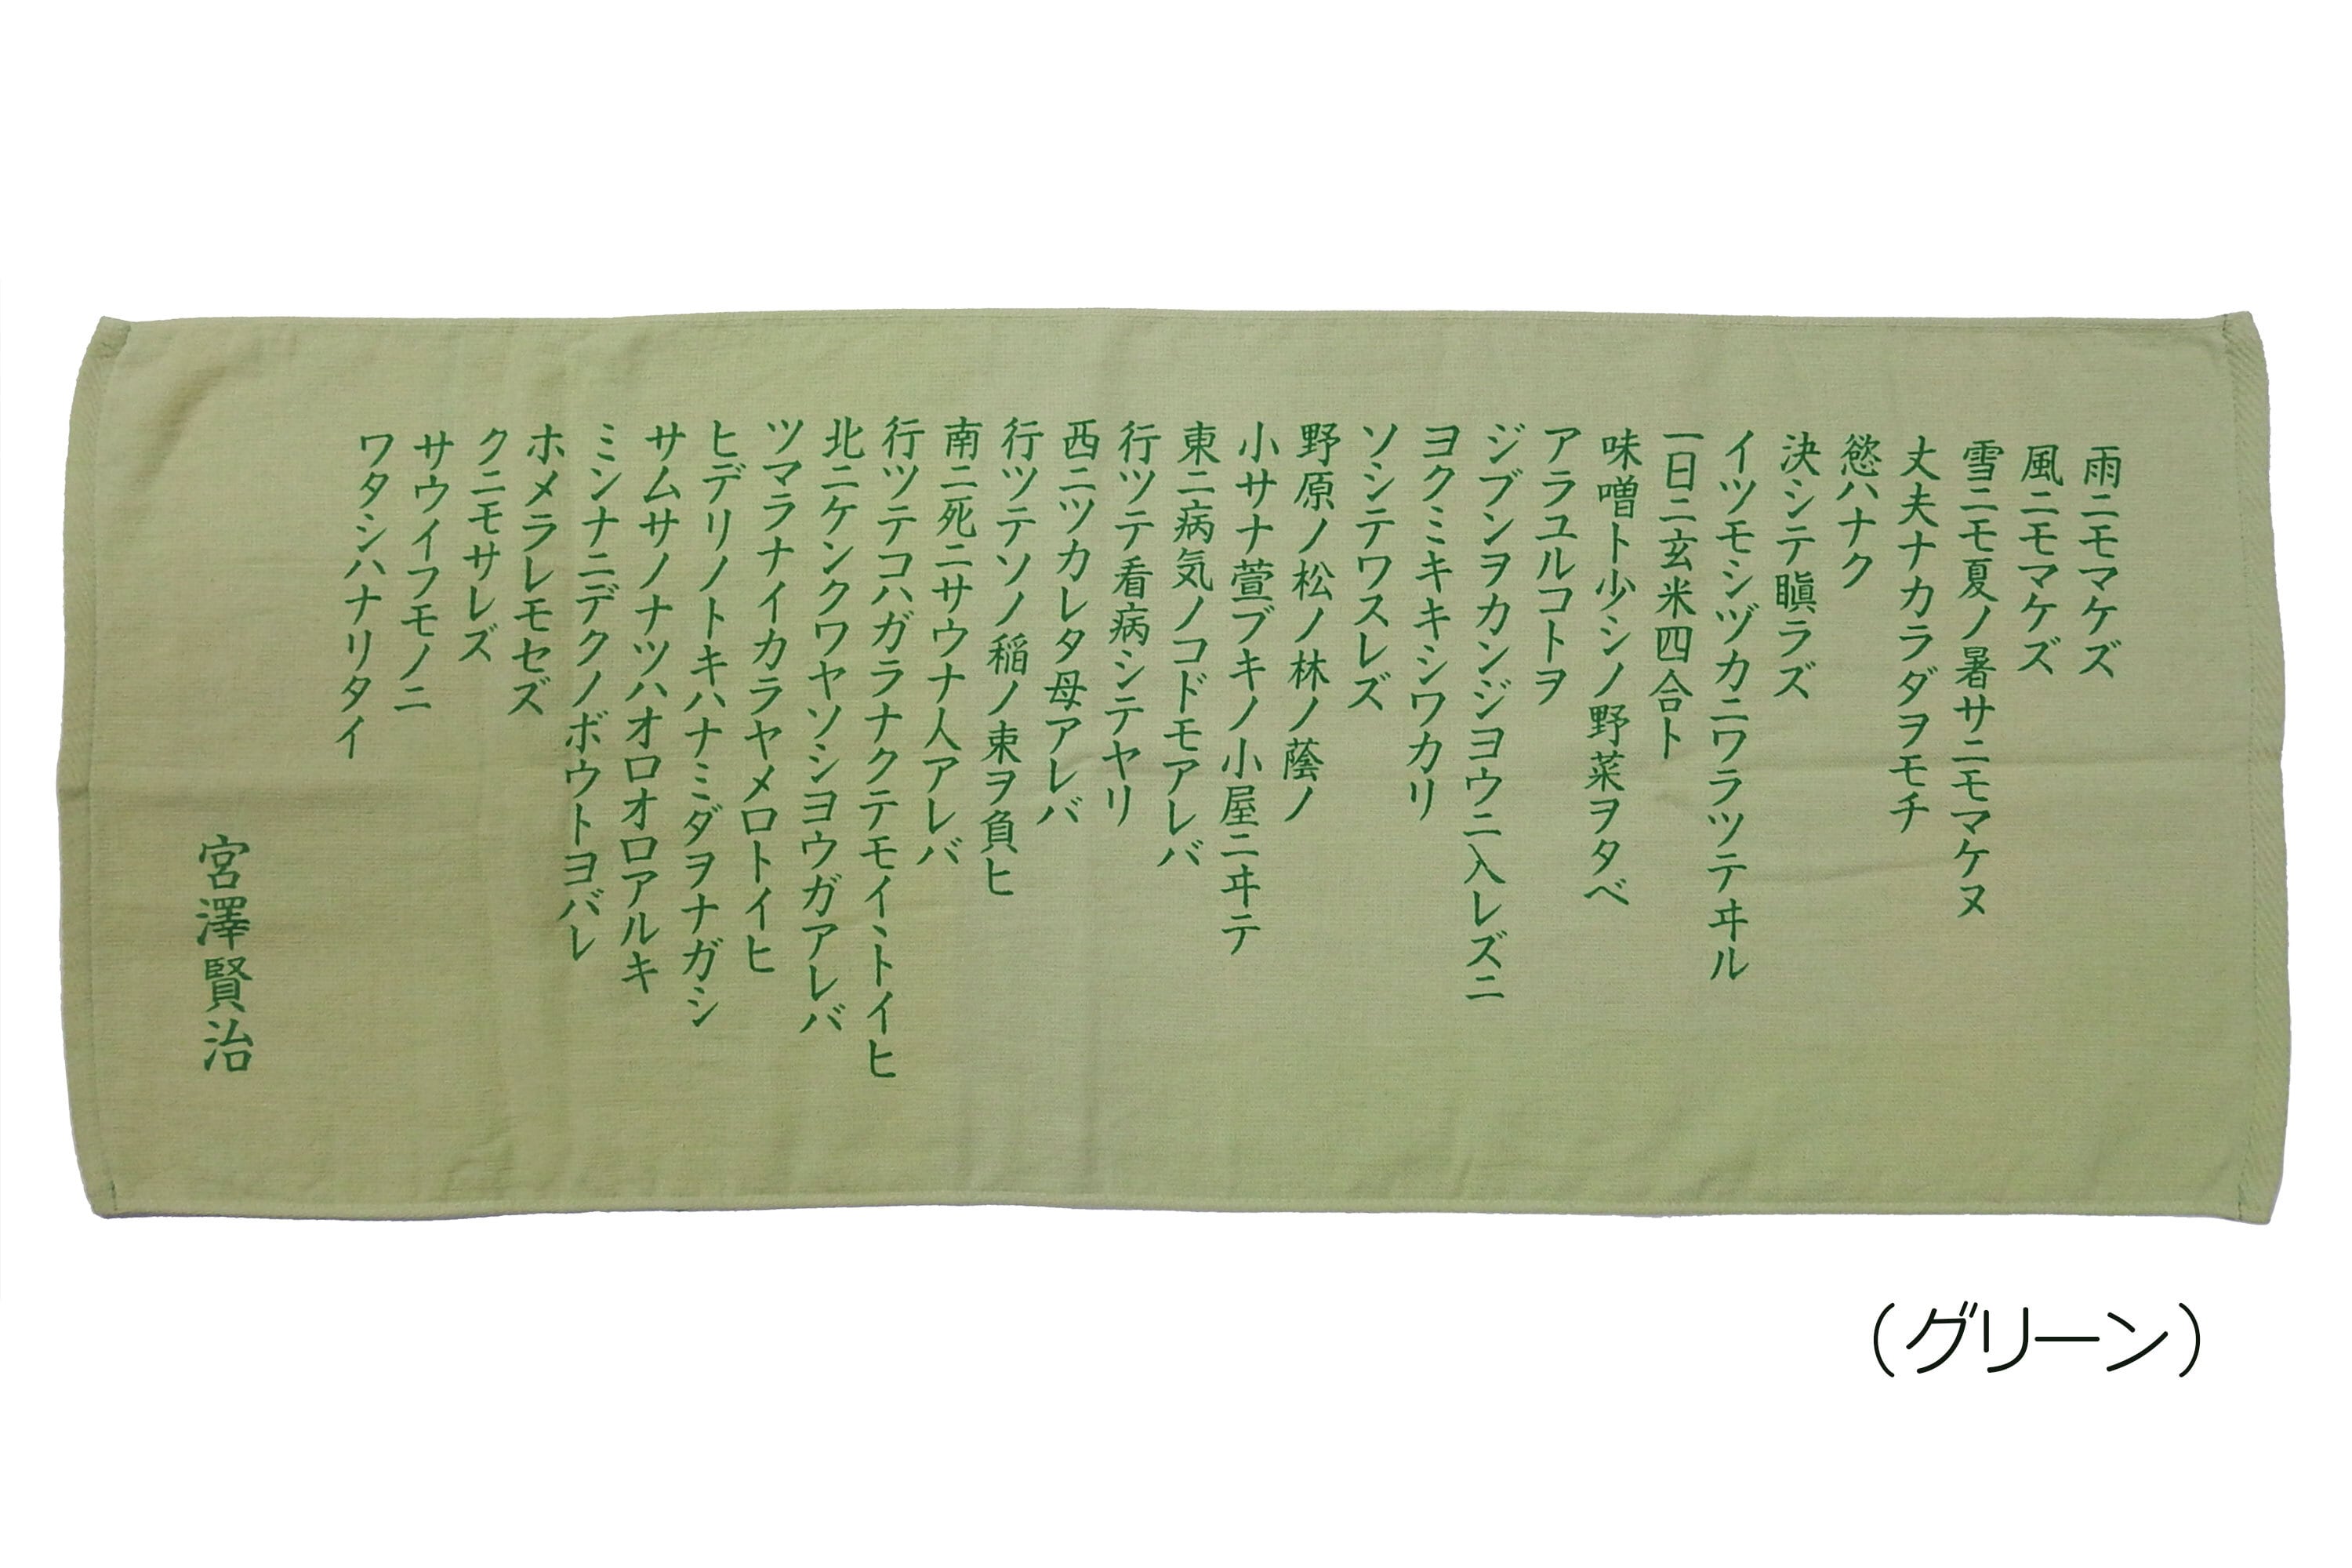 雨ニモマケズ
風ニモマケズ
雪ニモ夏ノ暑サニモマケヌ
丈夫ナカラダヲモチ
慾ハナク
決シテ瞋ラズ
イツモシヅカニワラツテヰル
一日ニ玄米四合ト
味噌ト少シノ野菜ヲタベ
アラユルコトヲ
ジブンヲカンジヨウニ入レズニ
ヨクミキキシワカリ
ソシテワスレズ
野原ノ松ノ林ノ蔭ノ
小サナ萱ブキノ小屋ニヰテ
東ニ病気ノコドモアレバ
行ツテ看病シテヤリ
西ニツカレタ母アレバ
行ツテソノ稲ノ束ヲ負ヒ
南ニ死ニサウナ人アレバ
行ツテコハガラナクテモイヽトイヒ
北ニケンクワヤソシヨウガアレバ
ツマラナイカラヤメロトイヒ
ヒデリノトキハナミダヲナガシ
サムサノナツハオロオロアルキ
ミンナニデクノボウトヨバレ
ホメラレモセズ
クニモサレズ
サウイフモノニ
ワタシハナリタイ
宮澤賢治
（グリーン）